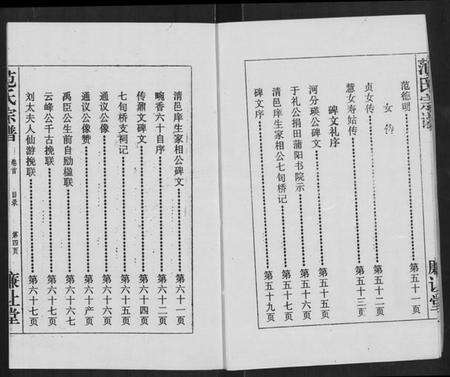 范氏宗谱
廉让堂
范德明 第五十一页
女传
贞女传 第五十二页
慧女寿姑传 第五十三页
碑文礼序
河分瑛公碑文 第五十五页
于礼公捐田蒲阳书院示 第五十六页
清邑庠生家相公七旬桥记 第五十七页
碑文序 第五十九页
清邑庠生家相公碑文 第六十一页
畹香六十自序 第六十二页
传鼒文碑文 第六十四页
七旬桥支祠记 第六十五页
通议公像 第六十六页
通议公像赞 第六十产页
禹臣公生前自励楹联 第六十六七
云峰公千古挽联 第六十七页
刘太夫人仙游挽联 第六十七页
范氏宗谱
卷首
目录
第四页
廉让堂